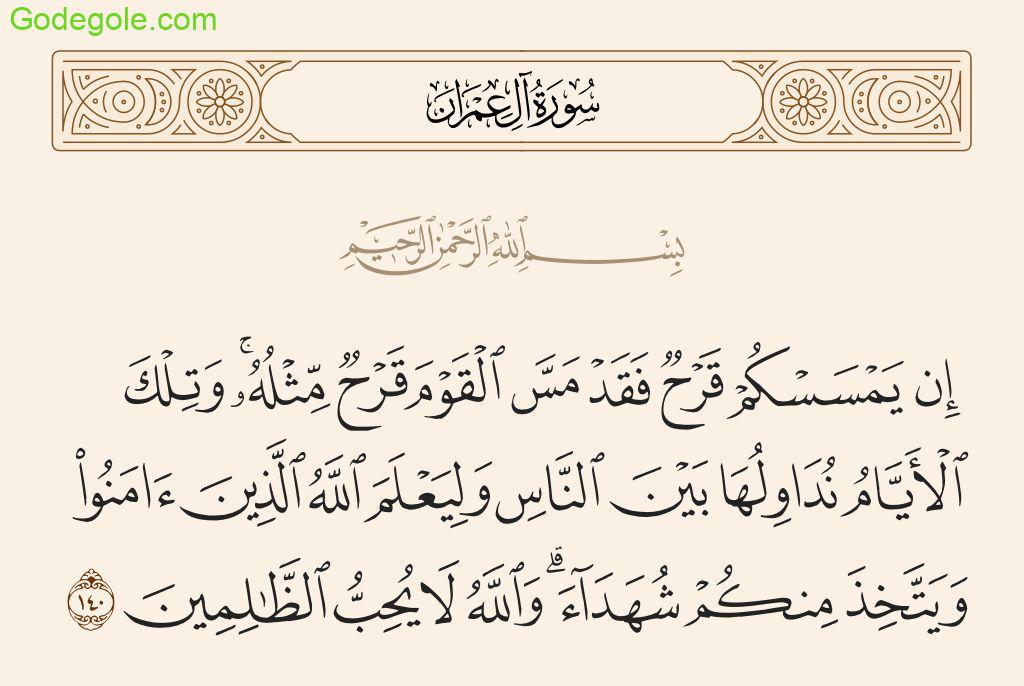 Godegole.com
سُورَةُ آلِ عِمْرَانَ
بِسْمِ ٱللَّهِ ٱلرَّحْمَٰنِ ٱلرَّحِيمِ
إِن يَمْسَسْكُمْ قَرْحٌ فَقَدْ مَسَّ ٱلْقَوْمَ قَرْحٌ مِّثْلُهُۥ ۚ وَتِلْكَ
ٱلْأَيَّامُ نُدَاوِلُهَا بَيْنَ ٱلنَّاسِ وَلِيَعْلَمَ ٱللَّهُ ٱلَّذِينَ ءَامَنُوا۟
وَيَتَّخِذَ مِنكُمْ شُهَدَآءَ ۗ وَٱللَّهُ لَا يُحِبُّ ٱلظَّٰلِمِينَ ١٤٠